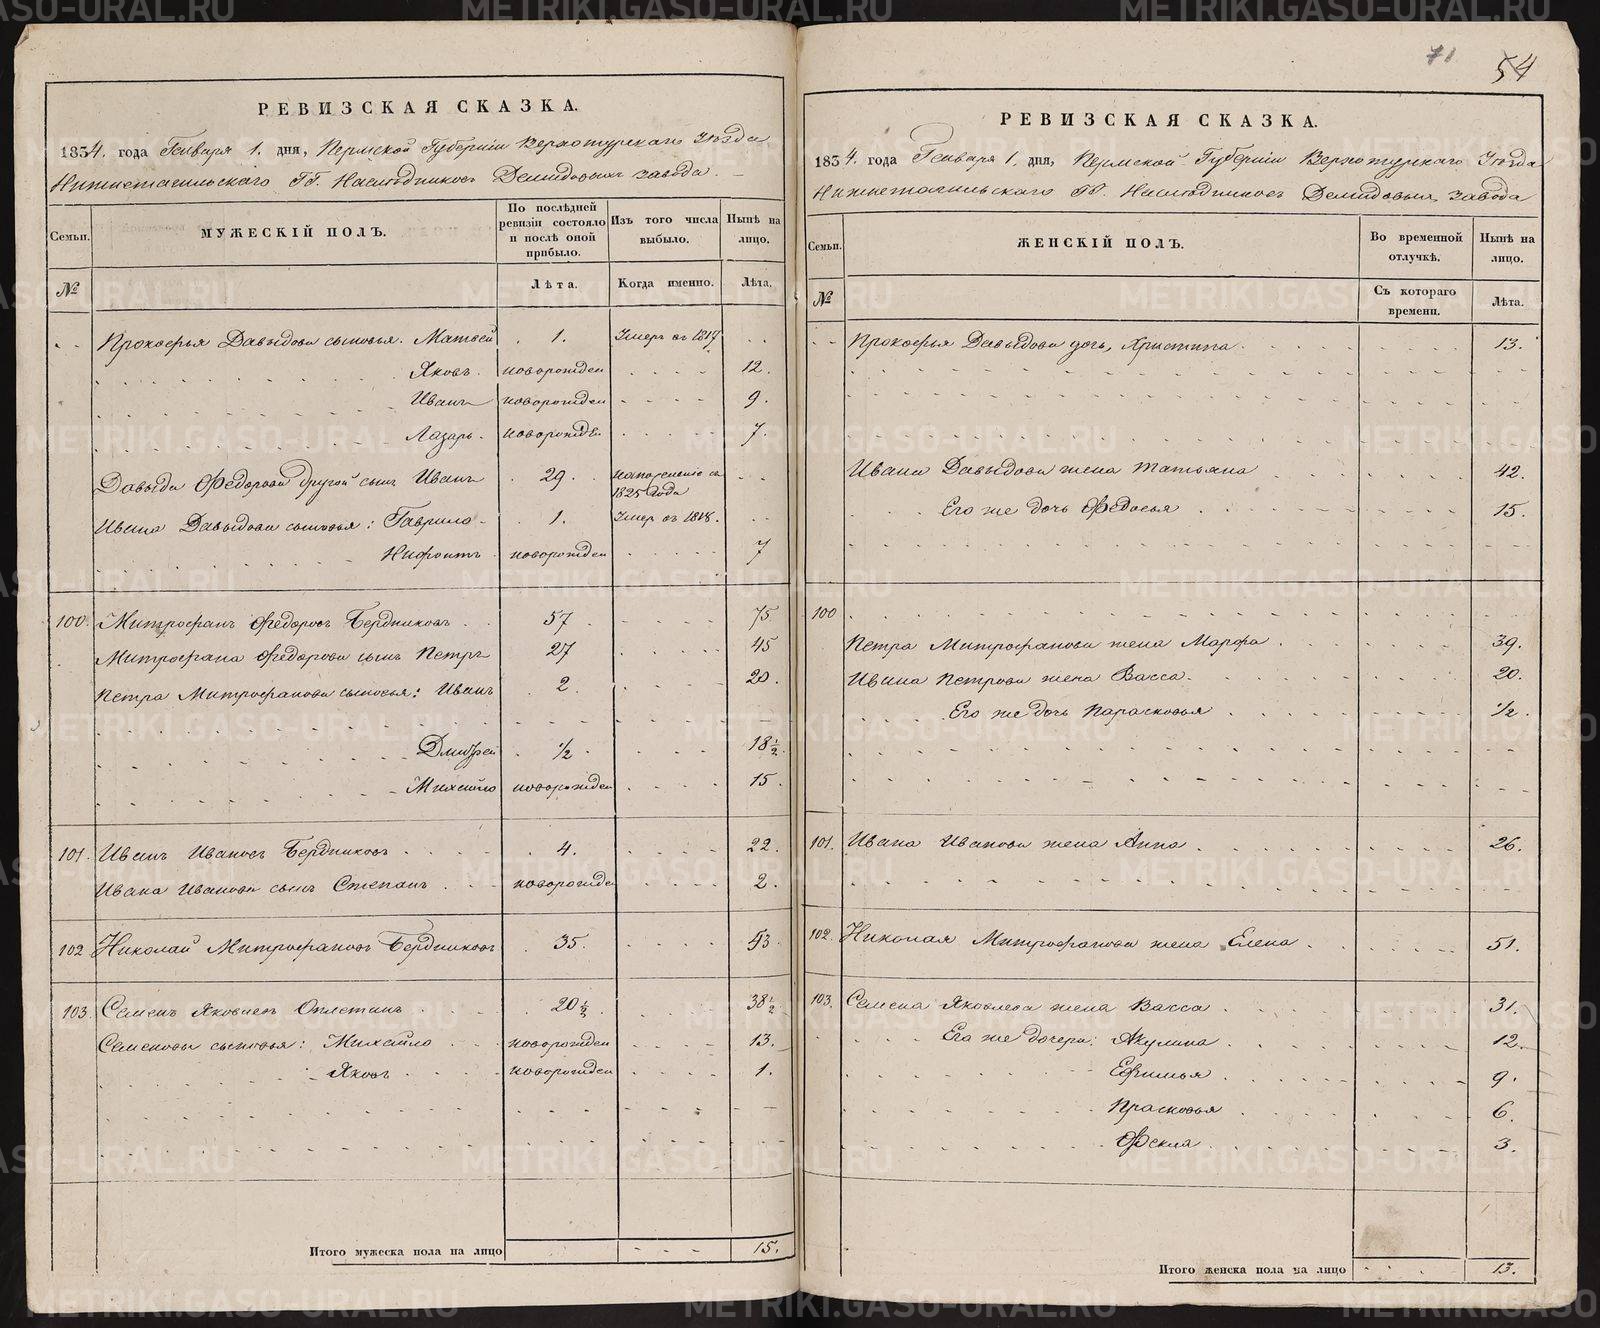 71 54
РЕВИЗСКАЯ СКАЗКА.
1834. года Генваря 1. дня, Пермской Губерніи Верхотурскаго Уѣзда
Нижнетагильскаго ГГ. Наслѣдниковъ Демидовыхъ завода.
Семьи. МУЖЕСКІЙ ПОЛЪ. По послѣдней ревизіи состояло и послѣ оной прибыло. Изъ того числа выбыло. Нынѣ на лицо.
№ Лѣта. Когда именно. Лѣта.
Прокофья Давыдова сыновья. Матвей 1. Умеръ въ 1817
Яковъ. новорожден 12.
Иванъ новорожден 9.
Лазарь. новорожде. 7.
Давыда Федорова другой сынъ Иванъ 29. 1825 года
Ивана Давыдова сыновья: Гаврило 1. Умер въ 1818.
Нифонтъ новорожден 7
100. Митрофанъ Федоровъ Бердниковъ 57 75
Митрофана Федорова сынъ Петръ 27 45
Петра Митрофанова сыновья: Иванъ 2 20.
Дмитрей 1/2 18 1/2.
Михайло новорожден 15
101. Иванъ Ивановъ Бердниковъ 4. 22.
Ивана Иванова сынъ Степанъ новорожде 2.
102 Николай Митрофановъ Бердниковъ 35. 53
103. Семенъ Яковлевъ Оплетинъ 20 1/2. 38 1/2.
Семеновы сыновья: Михайло новорожден 13.
Яковъ новорожден 1.
Итого мужеска пола на лицо 15.
РЕВИЗСКАЯ СКАЗКА.
1834. года Генваря 1. дня, Пермской Губерніи Верхотурскаго Уѣзда
Нижнетагильскаго ГГ. Наслѣдниковъ Демидовыхъ завода
Семьи. ЖЕНСКІЙ ПОЛЪ. Во временной отлучкѣ. Нынѣ на лицо.
№ Съ котораго времени. Лѣта.
Прокофья Давыдова дочь, Христина 13.
Ивана Давыдова жена Татьяна 42.
Его же дочь Федосья 15.
100
Петра Митрофанова жена Марфа 39.
Ивана Петрова жена Васса 20.
Его же дочь Парасковья 1/2.
101. Ивана Иванова жена Анна 26.
102. Николая Митрофанова жена Елена 51.
103. Семена Яковлева жена Васса 31.
Его же дочери: Акулина 12.
Ефимья 9.
Прасковья 6.
Фекла 3.
Итого женска пола на лицо 13.
METRIKI.GASO-URAL.RU